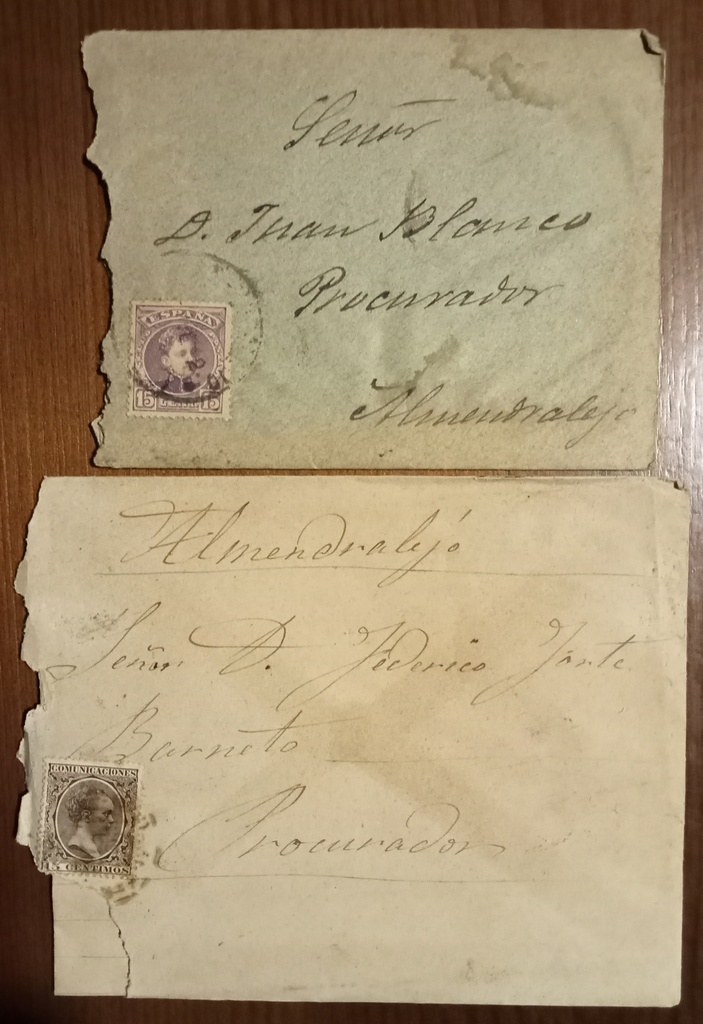 Señor
D. Juan Blanco
Procurador
ESPAÑA
15 CENT 15
Almendralejo
Almendralejo
Señor D. Federico
Barneto
COMUNICACIONES
Procurador
15 CENTIMOS